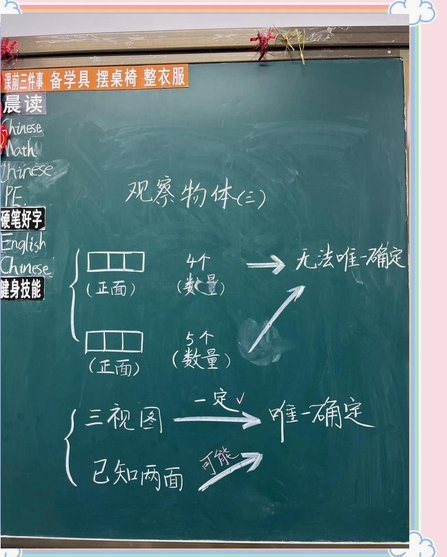 课前三件事 备学具 摆桌椅 整衣服
晨读
Chinese
Math
Chinese
PE
硬笔好字
English
Chinese
健身技能
观察物体(三)
4个
(正面) (数量) 无法唯一确定
5个
(正面) (数量)
三视图 一定✓ 唯一确定
已知两面 可能